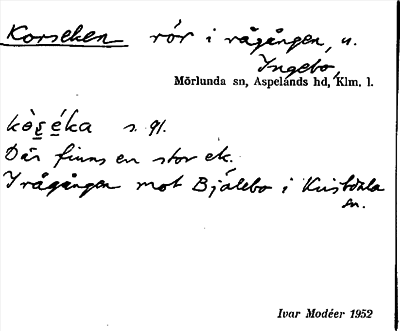 Korseken rör i rågången, u.
Ingebo,
Mörlunda sn, Aspelands hd, Klm. l.
kòṣéka s. 91.
Där finns en stor ek.
I rågången mot Bjälebo i Kristdala
sn.
Ivar Modéer 1952